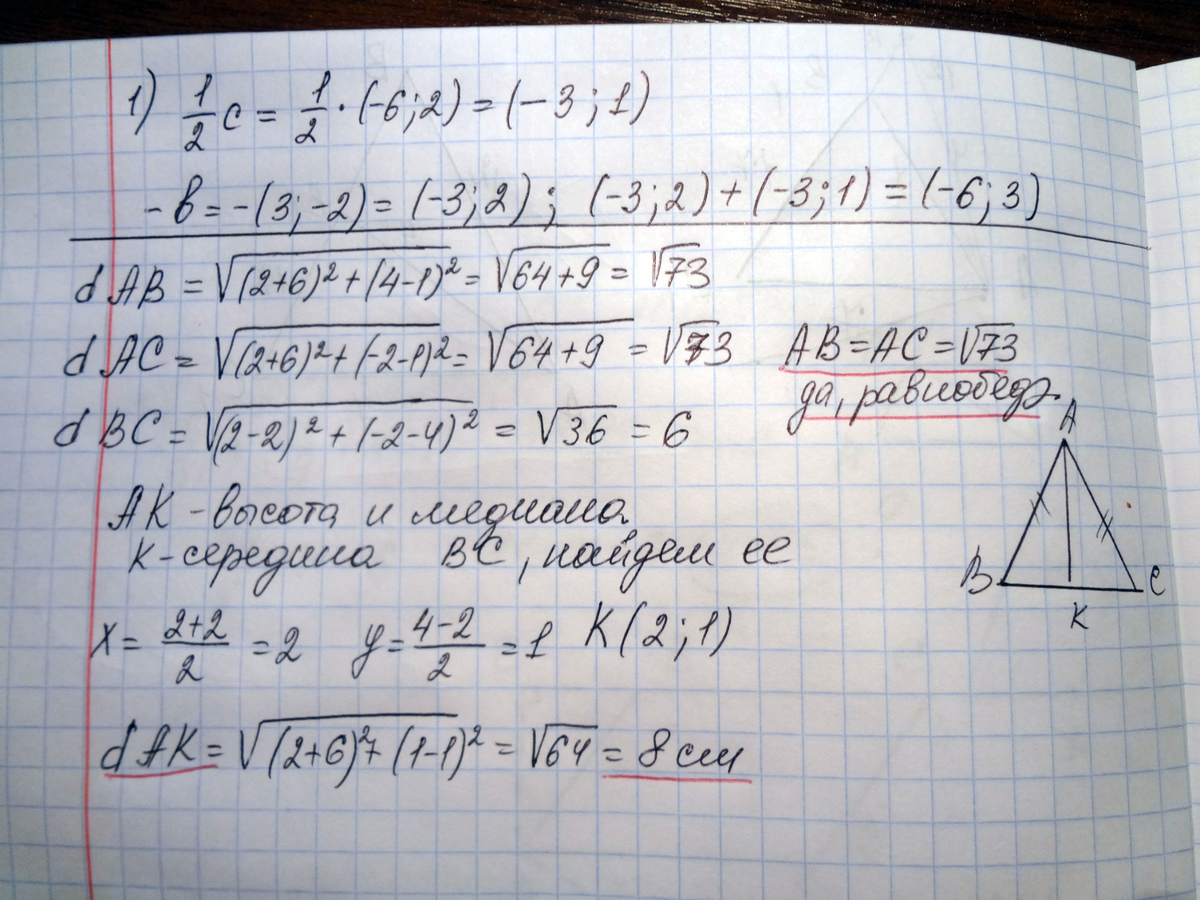 1) 1/2 c = 1/2 · (-6; 2) = (-3; 1)
-в = -(3; -2) = (-3; 2); (-3; 2) + (-3; 1) = (-6; 3)
d AB = √(2+6)² + (4-1)² = √64+9 = √73
d AC = √(2+6)² + (-2-1)² = √64+9 = √73
AB = AC = √73
да, равнобедр.
d BC = √(2-2)² + (-2-4)² = √36 = 6
A
B
C
K
AK - высота и медиана
K - середина BC, найдем ее
x = 2+2/2 = 2 y = 4-2/2 = 1 K(2; 1)
d AK = √(2+6)² + (1-1)² = √64 = 8 см